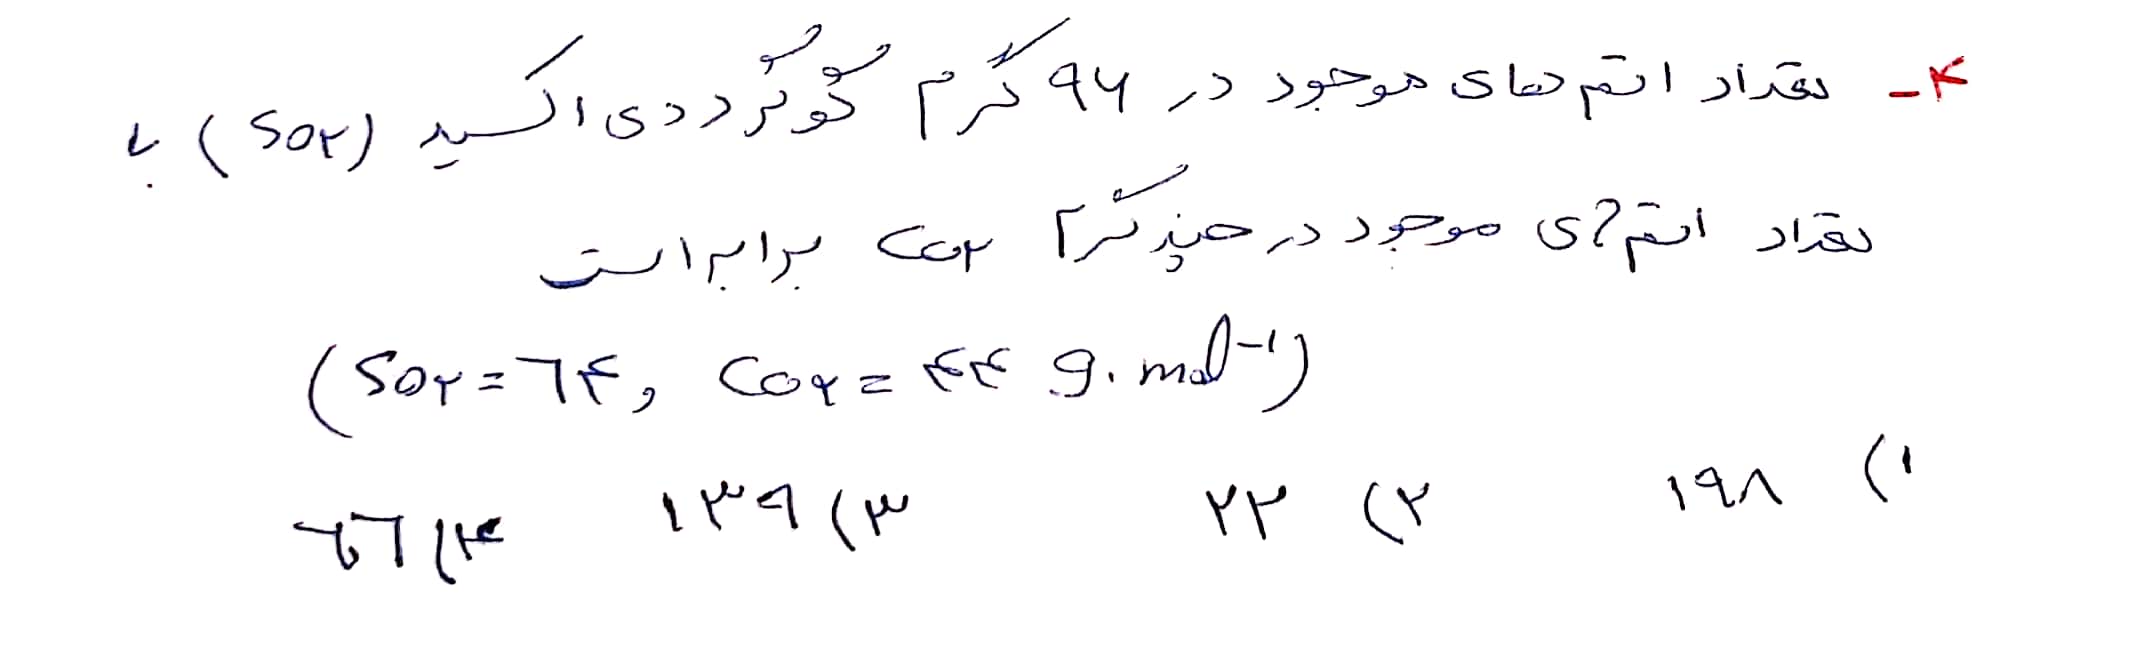 ۴- تعداد اتم های موجود در ۹۶ گرم گوگرد دی اکسید (SO۲) با
تعداد اتم های موجود در چند گرم CO۲ برابر است
(SO۲ = ۶۴, CO۲ = ۴۴ g. mol-۱)
۱) ۱۹۸ ۲) ۲۳ ۳) ۱۳۹ ۴) ۶۶